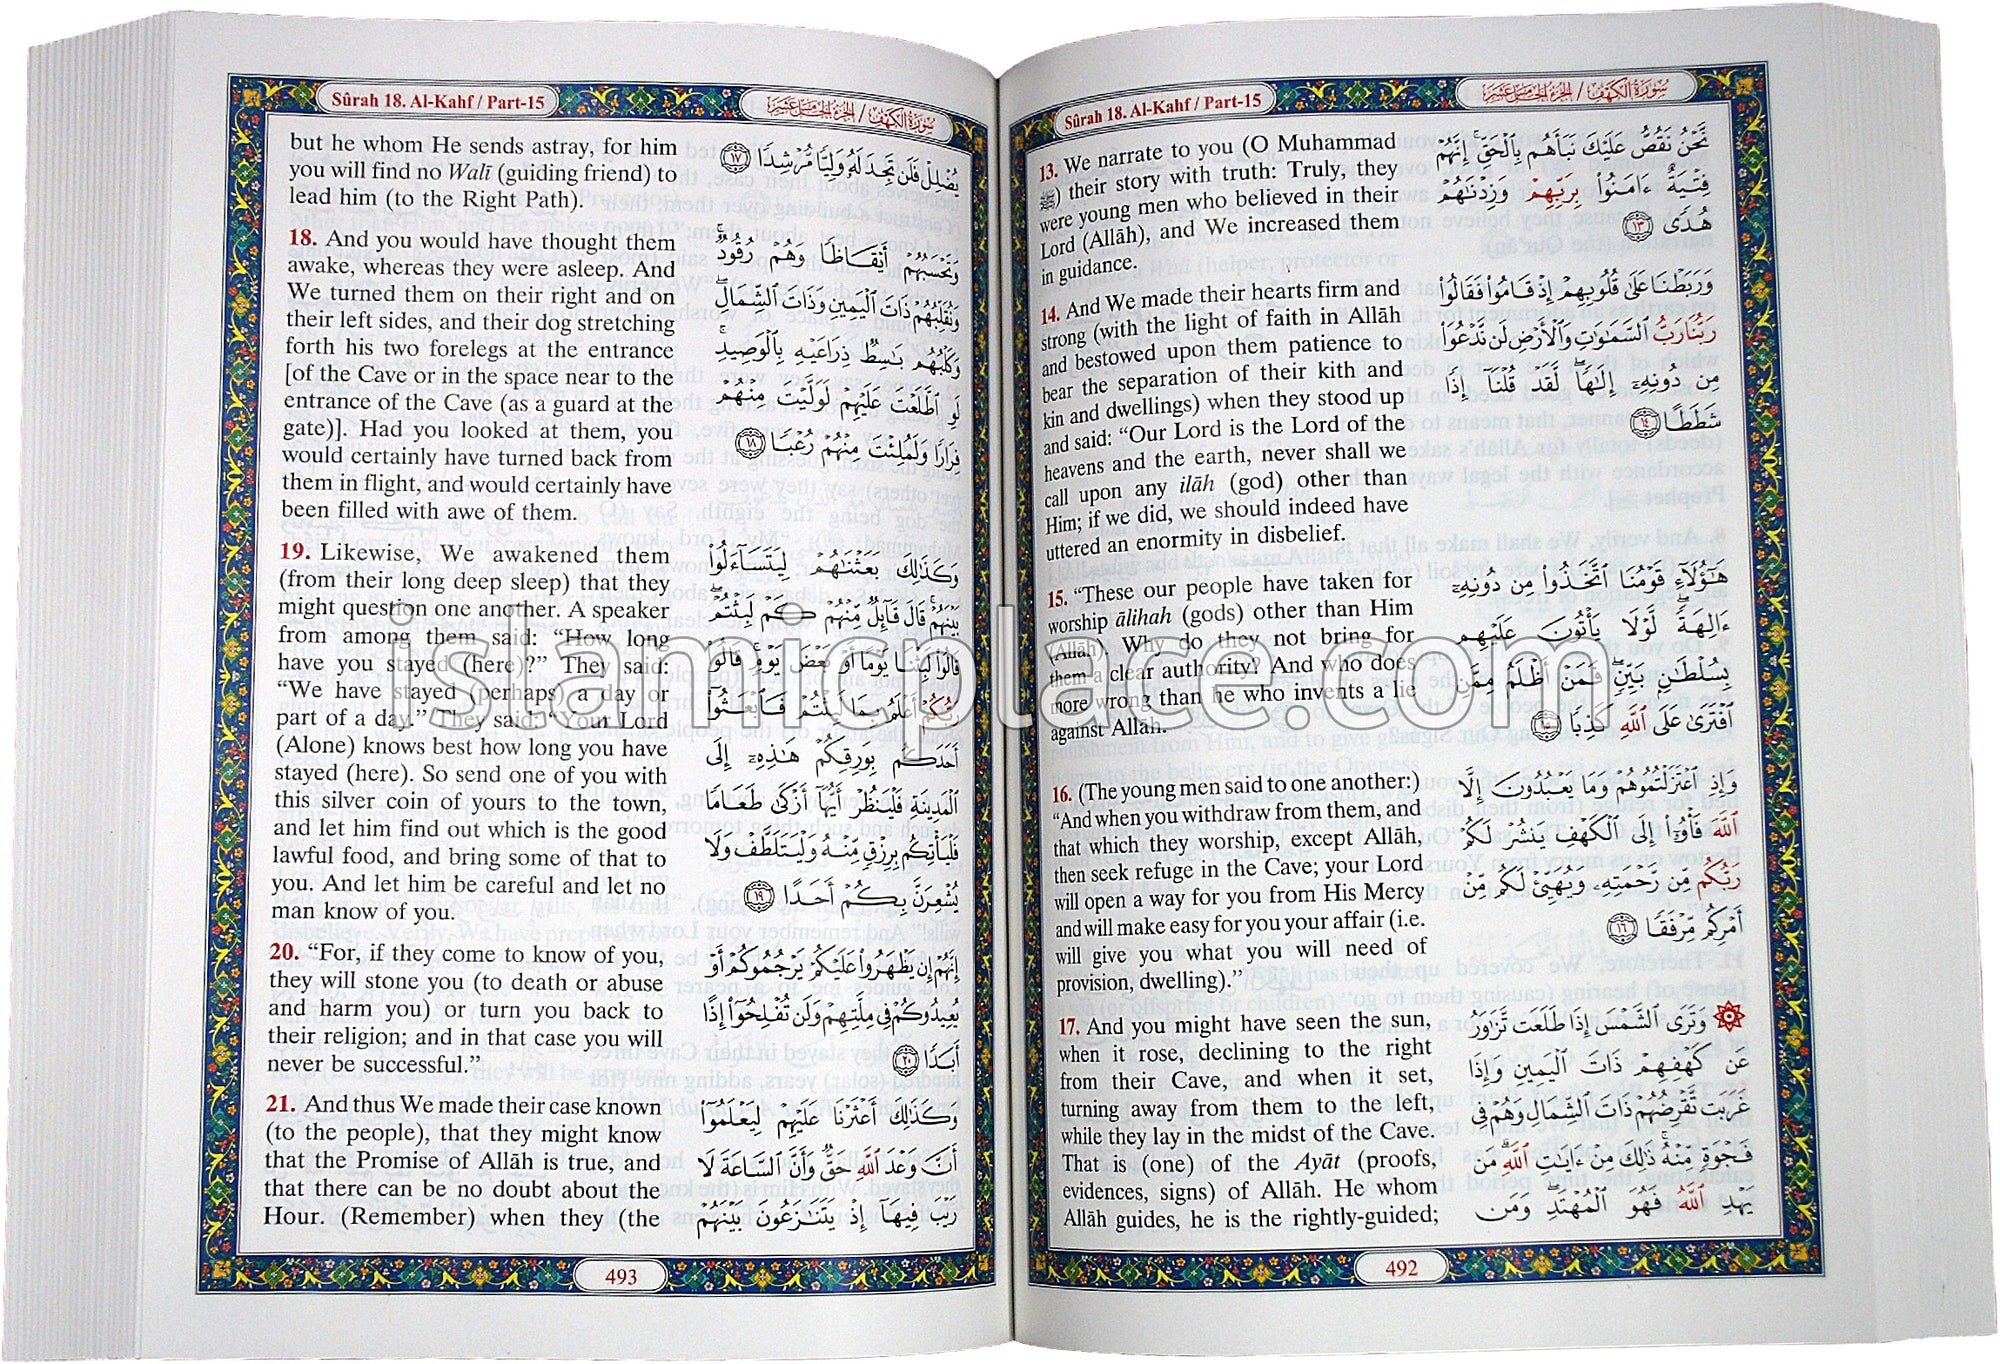 Sûrah 18. Al-Kahf / Part-15
سورة الكهف / الجزء الخامس عشر
13. We narrate to you (O Muhammad
ﷺ) their story with truth: Truly, they
were young men who believed in their
Lord (Allāh), and We increased them
in guidance.
نَّحْنُ نَقُصُّ عَلَيْكَ نَبَأَهُم بِالْحَقِّ ۚ إِنَّهُمْ
فِتْيَةٌ ءَامَنُوا۟ بِرَبِّهِمْ وَزِدْنَٰهُمْ
هُدًى ١٣
14. And We made their hearts firm and
strong (with the light of faith in Allāh
and bestowed upon them patience to
bear the separation of their kith and
kin and dwellings) when they stood up
and said: “Our Lord is the Lord of the
heavens and the earth, never shall we
call upon any ilāh (god) other than
Him; if we did, we should indeed have
uttered an enormity in disbelief.
وَرَبَطْنَا عَلَىٰ قُلُوبِهِمْ إِذْ قَامُوا۟ فَقَالُوا۟
رَبُّنَا رَبُّ السَّمَٰوَٰتِ وَالْأَرْضِ لَن نَّدْعُوَا۟
مِن دُونِهِۦٓ إِلَٰهًا ۖ لَّقَدْ قُلْنَآ إِذًا
شَطَطًا ١٤
15. “These our people have taken for
worship ālihah (gods) other than Him
(Allāh). Why do they not bring for
them a clear authority? And who does
more wrong than he who invents a lie
against Allāh.
هَٰٓؤُلَآءِ قَوْمُنَا اتَّخَذُوا۟ مِن دُونِهِۦٓ
ءَالِهَةً ۖ لَّوْلَا يَأْتُونَ عَلَيْهِم
بِسُلْطَٰنٍۭ بَيِّنٍ ۖ فَمَنْ أَظْلَمُ مِمَّنِ
افْتَرَىٰ عَلَى اللَّهِ كَذِبًا ١٥
16. (The young men said to one another:)
“And when you withdraw from them, and
that which they worship, except Allāh,
then seek refuge in the Cave; your Lord
will open a way for you from His Mercy
and will make easy for you your affair (i.e.
will give you what you will need of
provision, dwelling).”
وَإِذِ اعْتَزَلْتُمُوهُمْ وَمَا يَعْبُدُونَ إِلَّا
اللَّهَ فَأْوُۥٓا۟ إِلَى الْكَهْفِ يَنشُرْ لَكُمْ
رَبُّكُم مِّن رَّحْمَتِهِۦ وَيُهَيِّئْ لَكُم مِّنْ
أَمْرِكُم مِّرْفَقًا ١٦
17. And you might have seen the sun,
when it rose, declining to the right
from their Cave, and when it set,
turning away from them to the left,
while they lay in the midst of the Cave.
That is (one) of the Ayāt (proofs,
evidences, signs) of Allāh. He whom
Allāh guides, he is the rightly-guided;
۞ وَتَرَى الشَّمْسَ إِذَا طَلَعَت تَّزَٰوَرُ
عَن كَهْفِهِمْ ذَاتَ الْيَمِينِ وَإِذَا
غَرَبَت تَّقْرِضُهُمْ ذَاتَ الشِّمَالِ وَهُمْ فِى
فَجْوَةٍ مِّنْهُ ۚ ذَٰلِكَ مِنْ ءَايَٰتِ اللَّهِ ۗ مَن
يَهْدِ اللَّهُ فَهُوَ الْمُهْتَدِ ۖ وَمَن
492
Sûrah 18. Al-Kahf / Part-15
سورة الكهف / الجزء الخامس عشر
but he whom He sends astray, for him
you will find no Walī (guiding friend) to
lead him (to the Right Path).
يُضْلِلْ فَلَن تَجِدَ لَهُۥ وَلِيًّا مُّرْشِدًا ١٧
18. And you would have thought them
awake, whereas they were asleep. And
We turned them on their right and on
their left sides, and their dog stretching
forth his two forelegs at the entrance
[of the Cave or in the space near to the
entrance of the Cave (as a guard at the
gate)]. Had you looked at them, you
would certainly have turned back from
them in flight, and would certainly have
been filled with awe of them.
وَتَحْسَبُهُمْ أَيْقَاظًا وَهُمْ رُقُودٌ ۚ
وَنُقَلِّبُهُمْ ذَاتَ الْيَمِينِ وَذَاتَ الشِّمَالِ ۖ
وَكَلْبُهُم بَٰسِطٌ ذِرَاعَيْهِ بِالْوَصِيدِ ۚ
لَوِ اطَّلَعْتَ عَلَيْهِمْ لَوَلَّيْتَ مِنْهُمْ
فِرَارًا وَلَمُلِئْتَ مِنْهُمْ رُعْبًا ١٨
19. Likewise, We awakened them
(from their long deep sleep) that they
might question one another. A speaker
from among them said: “How long
have you stayed (here)?” They said:
“We have stayed (perhaps) a day or
part of a day.” They said: “Your Lord
(Alone) knows best how long you have
stayed (here). So send one of you with
this silver coin of yours to the town,
and let him find out which is the good
lawful food, and bring some of that to
you. And let him be careful and let no
man know of you.
وَكَذَٰلِكَ بَعَثْنَٰهُمْ لِيَتَسَآءَلُوا۟
بَيْنَهُمْ ۚ قَالَ قَآئِلٌ مِّنْهُمْ كَمْ لَبِثْتُمْ ۖ
قَالُوا۟ لَبِثْنَا يَوْمًا أَوْ بَعْضَ يَوْمٍ ۚ قَالُوا۟
رَبُّكُمْ أَعْلَمُ بِمَا لَبِثْتُمْ فَابْعَثُوٓا۟
أَحَدَكُم بِوَرِقِكُمْ هَٰذِهِۦٓ إِلَى
الْمَدِينَةِ فَلْيَنظُرْ أَيُّهَآ أَزْكَىٰ طَعَامًا
فَلْيَأْتِكُم بِرِزْقٍ مِّنْهُ وَلْيَتَلَطَّفْ وَلَا
يُشْعِرَنَّ بِكُمْ أَحَدًا ١٩
20. “For, if they come to know of you,
they will stone you (to death or abuse
and harm you) or turn you back to
their religion; and in that case you will
never be successful.”
إِنَّهُمْ إِن يَظْهَرُوا۟ عَلَيْكُمْ يَرْجُمُوكُمْ أَوْ
يُعِيدُوكُمْ فِى مِلَّتِهِمْ وَلَن تُفْلِحُوٓا۟ إِذًا
أَبَدًا ٢٠
21. And thus We made their case known
(to the people), that they might know
that the Promise of Allāh is true, and
that there can be no doubt about the
Hour. (Remember) when they (the
وَكَذَٰلِكَ أَعْثَرْنَا عَلَيْهِمْ لِيَعْلَمُوٓا۟
أَنَّ وَعْدَ اللَّهِ حَقٌّ وَأَنَّ السَّاعَةَ لَا
رَيْبَ فِيهَآ إِذْ يَتَنَٰزَعُونَ بَيْنَهُمْ
493
islamicplace.com